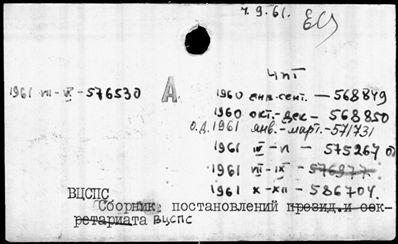 7.9.61.
ЧпТ
1961 VII-IX-576530 А 1960 янв.-сент. - 568849
1960 окт.-дек - 568850
О.Д. 1961 янв.-март.-571731
1961 IV-VI - 575267
1961 VII-IX - 576977
1961 X-XII - 586704
ВЦСПС
Сборник постановлений презид. и сек-
ретариата ВЦСПС